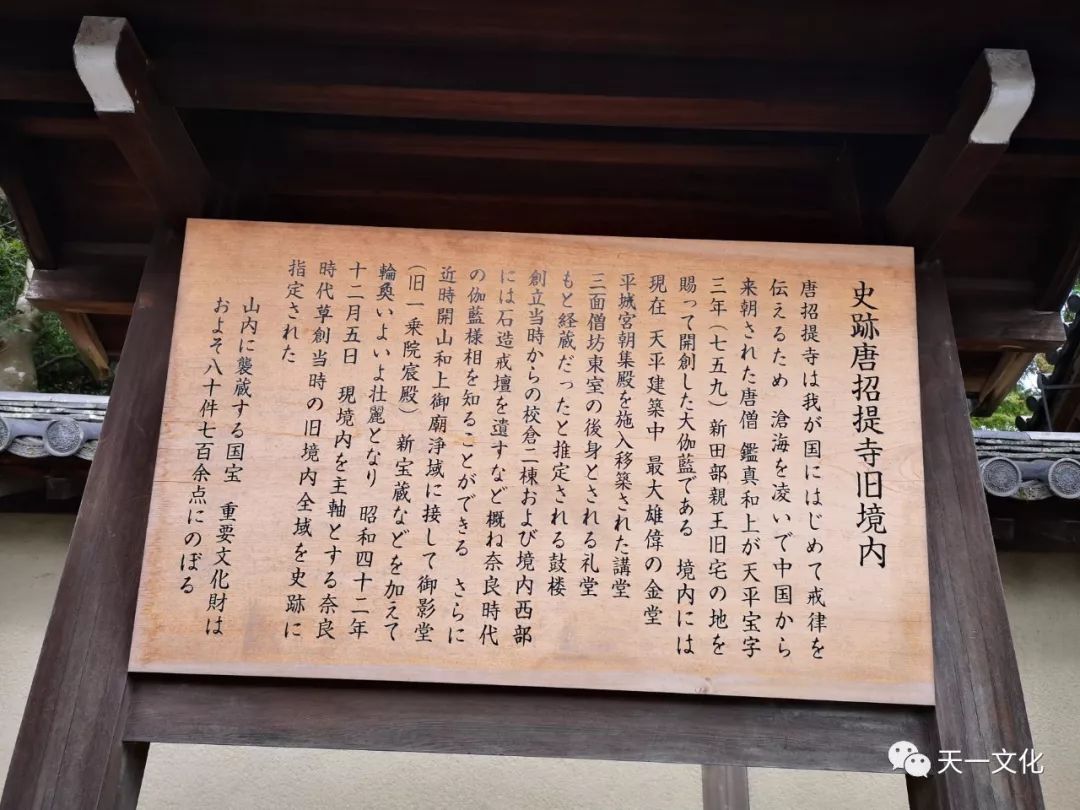 史跡唐招提寺旧境内
唐招提寺は我が国にはじめて戒律を
伝えるため　滄海を凌いで中国から
来朝された唐僧　鑑真和上が天平宝字
三年（七五九）新田部親王旧宅の地を
賜って開創した大伽藍である　境内には
現在　天平建築中　最大雄偉の金堂
平城宮朝集殿を施入移築された講堂
三面僧坊東室の後身とされる礼堂
もと経蔵だったと推定される鼓楼
創立当時からの校倉二棟および境内西部
には石造戒壇を遺すなど概ね奈良時代
の伽藍様相を知ることができる　さらに
近時開山和上御廟浄域に接して御影堂
（旧一乗院宸殿）　新宝蔵などを加えて
輪奐いよいよ壮麗となり　昭和四十二年
十二月五日　現境内を主軸とする奈良
時代草創当時の旧境内全域を史跡に
指定された
山内に襲蔵する国宝　重要文化財は
およそ八十件七百余点にのぼる
天一文化